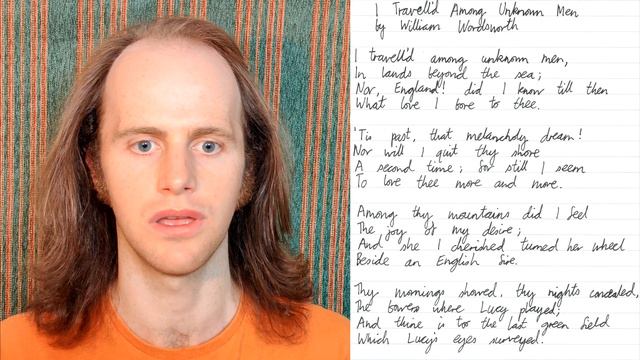 I Travell'd Among Unknown Men
by William Wordsworth
I travell'd among unknown men,
In lands beyond the sea;
Nor, England! did I know till then
What love I bore to thee.
'Tis past, that melancholy dream!
Nor will I quit thy shore
A second time; for still I seem
To love thee more and more.
Among thy mountains did I feel
The joy of my desire;
And she I cherished turned her wheel
Beside an English fire.
Thy mornings showed, thy nights concealed,
The bowers where Lucy played;
And thine is too the last green field
Which Lucy's eyes surveyed.